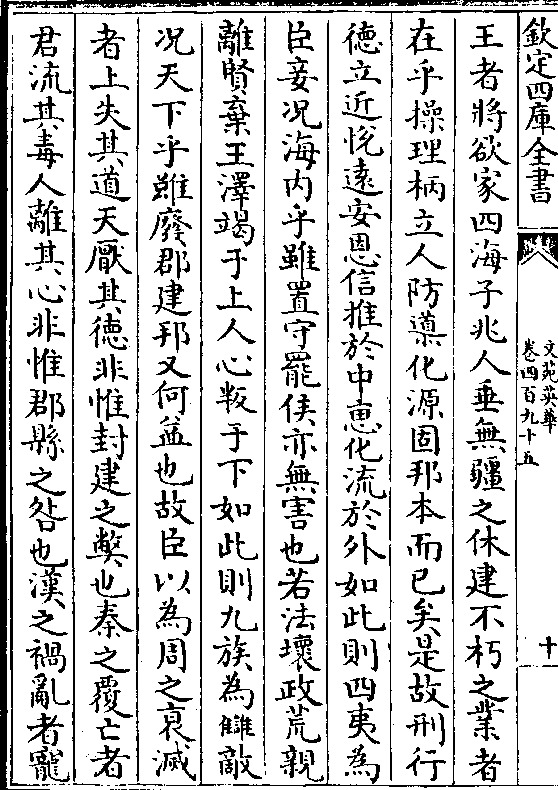 欽定四庫全書
文苑英華
卷四百九十五
十
王者將欲家四海子兆人垂無疆之休建不朽之業者
在乎操理柄立人防導化源固邦本而已矣是故刑行
德立近恱逺安恩信推於中恵化流於外如此則四夷為
臣妾况海内乎雖置守罷侯亦無害也若法壞政荒親
離賢棄王澤竭于上人心叛于下如此則九族為讎敵
况天下乎雖廢郡建邦又何益也故臣以為周之衰滅
者上失其道天厭其德非惟封建之弊也秦之覆亡者
君流其毒人離其心非惟郡縣之咎也漢之禍亂者寵